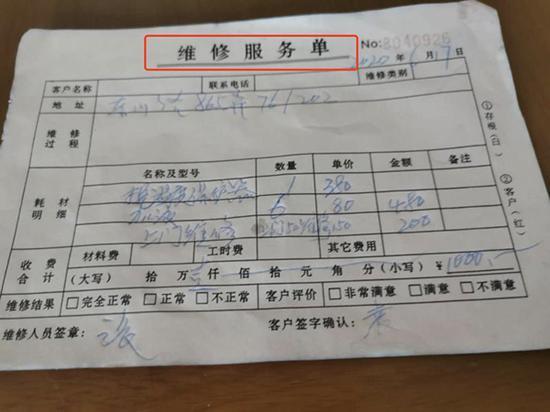 维修服务单
No:8040926
2020 年 6 月 17 日
客户名称 联系电话 维修类别
地址 865弄 76/202
维修过程
名称及型号 数量 单价 金额 备注
耗材明细
保护器 1 380
加液 6 80 480
上门维修 200
收费合计
材料费 工时费 其它费用
(大写) 拾 万 壹 仟 佰 拾 元 角 分 (小写) ¥ 1000.-
维修结果 □完全正常 □正常 □不正常 客户评价 □非常满意 □满意 □不满意
维修人员签章: 客户签字确认:
①存根(白)
②客户(红)